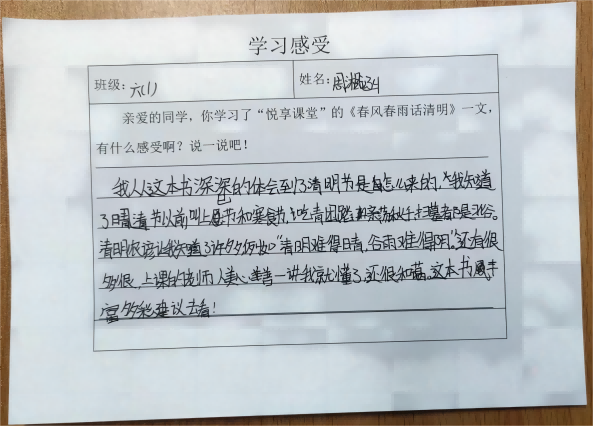 学习感受
班级: 六(1) 姓名: 周湘
亲爱的同学，你学习了“悦享课堂”的《春风春雨话清明》一文，
有什么感受啊？说一说吧！
我从这本书深深的体会到了清明节是怎么来的，我知道
了清明节以前叫上巳节和寒食节，吃青团踏青荡秋千扫墓都是习俗。
清明谚语让我知道了许多例如“清明难得晴，谷雨难得阴”。还有很
多很，上课的老师人美心善一讲我就懂了还很和蔼。这本书丰
富多彩建议去看！